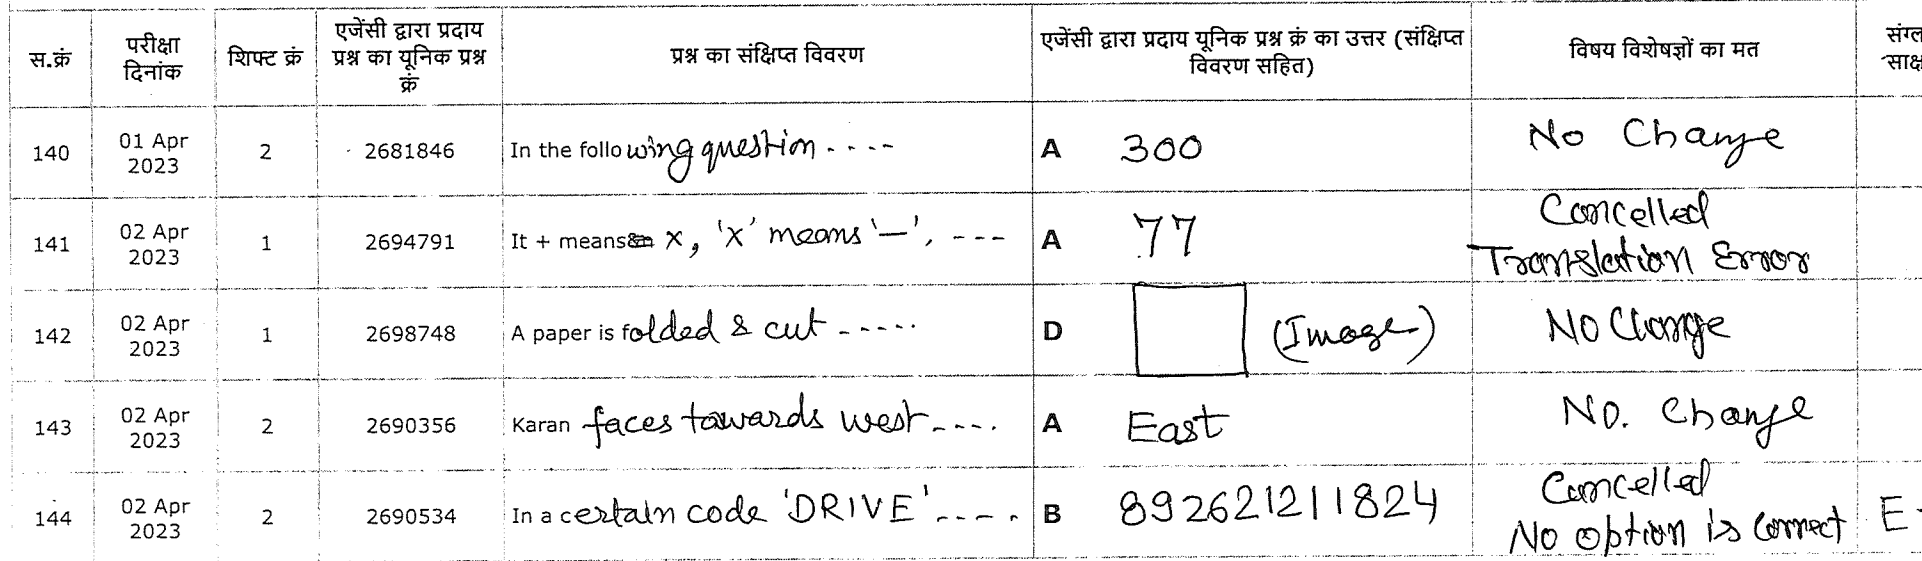 स.क्रं परीक्षा दिनांक शिफ्ट क्रं एजेंसी द्वारा प्रदाय प्रश्न का यूनिक प्रश्न क्रं प्रश्न का संक्षिप्त विवरण एजेंसी द्वारा प्रदाय यूनिक प्रश्न क्रं का उत्तर (संक्षिप्त विवरण सहित) विषय विशेषज्ञों का मत
140 01 Apr 2023 2 2681846 In the following question ---- A 300 No Change
141 02 Apr 2023 1 2694791 It + means x, 'x' means '—', --- A 77 Cancelled Translation Error
142 02 Apr 2023 1 2698748 A paper is folded & cut ----- D (Image) No Change
143 02 Apr 2023 2 2690356 Karan faces towards west ---- A East No. Change
144 02 Apr 2023 2 2690534 In a certain code 'DRIVE' ---- B 892621211824 Cancelled No option is correct E-